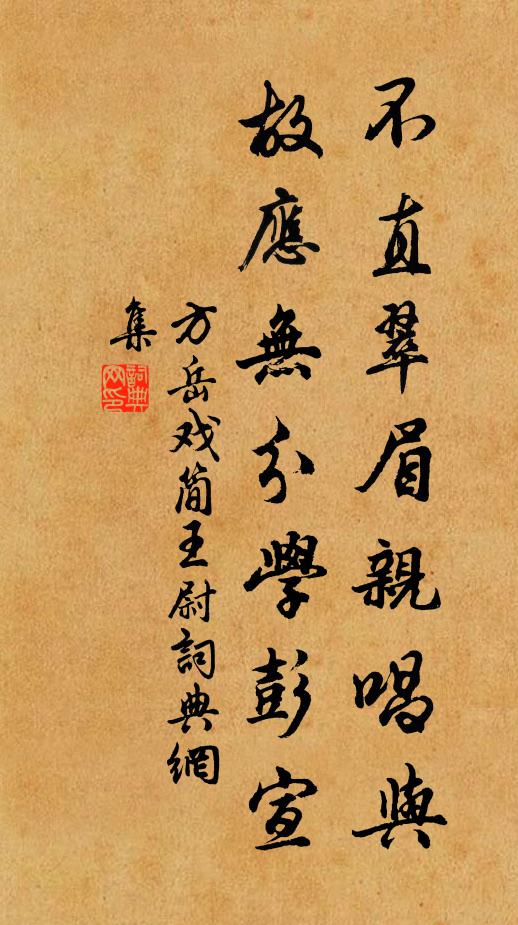 不直翠眉親唱與
故應無分學彭宣
方岳戏簡王尉詞典網
集
詞典网印